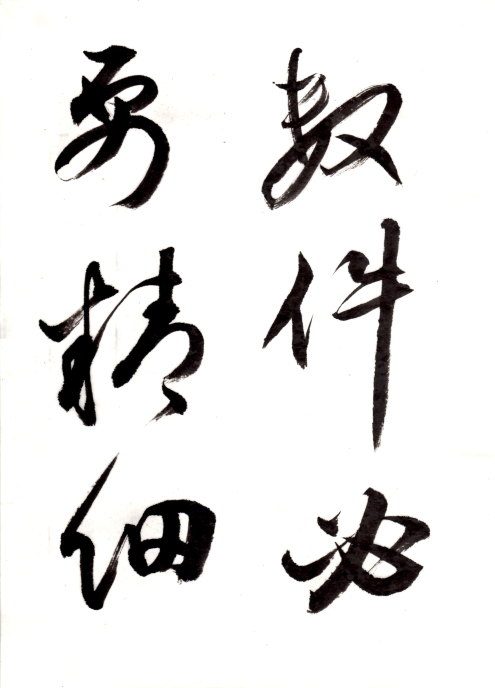 数件必
要精细